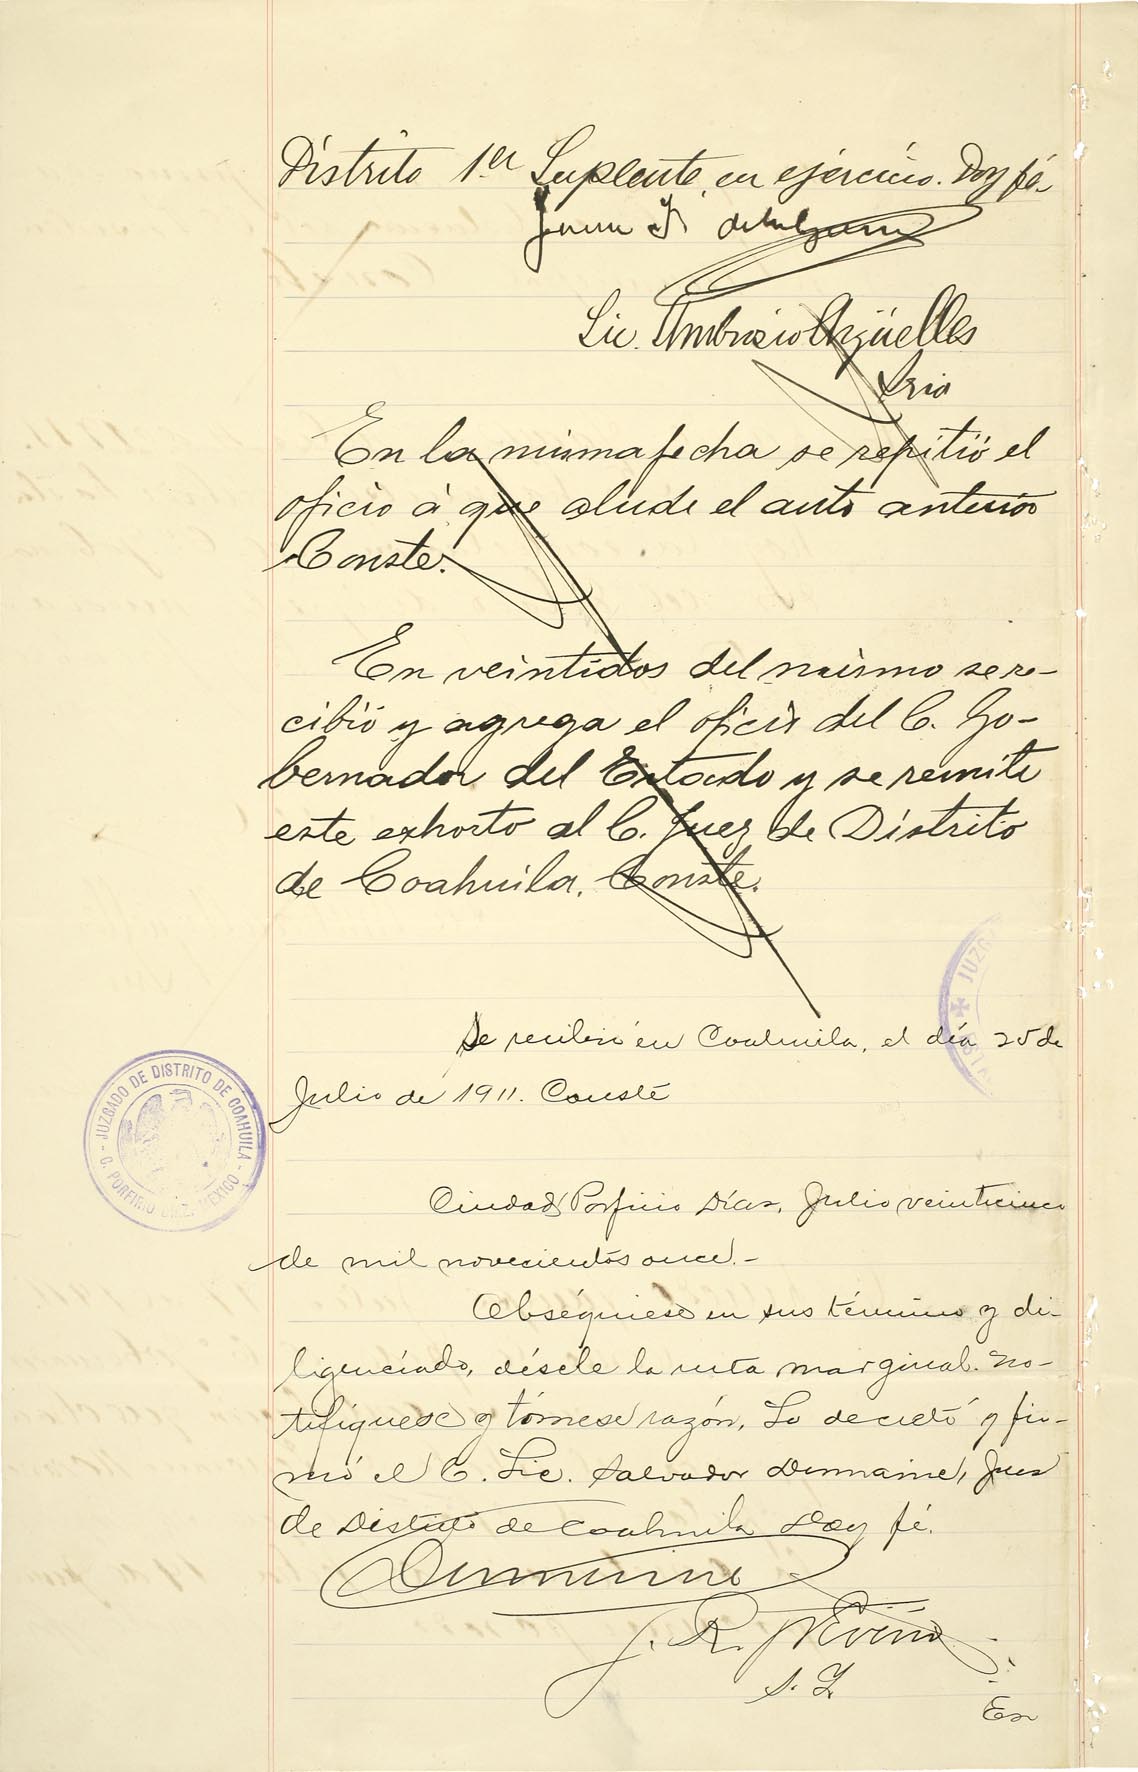 Distrito 1er Suplente, en ejercicio. Doy fé.
Lic. Ambrosio Argüelles
Srio
En la misma fecha se repitió el
oficio á que alude el auto anterior
Conste.
En veintidos del mismo se re-
cibió y agrega el oficio del C. Go-
bernador del Estado y se remite
este exhorto al C. Juez de Distrito
de Coahuila. Conste.
Se recibió en Coahuila, el día 25 de
Julio de 1911. Conste
JUZGADO DE DISTRITO DE COAHUILA
C. PORFIRIO DIAZ, MEXICO
JUZG
Ciudad Porfirio Díaz, Julio veinticinco
de mil novecientos once.-
Obséquiese en sus términos y di-
ligenciado, désele la ruta marginal. No-
tifíquese y tómese razón. Lo decretó y fir-
mó el C. Lic. Salvador Dunmaine, Juez
de Distrito de Coahuila Doy fé.
J. R. Treviño
S. I.
En